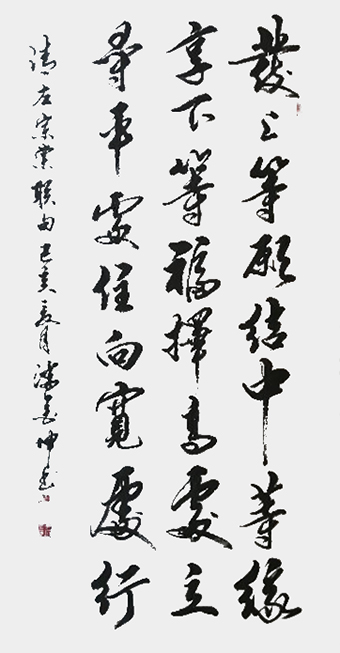 發上等願結中等緣
享下等福擇高處立
尋平處住向寬處行
清左宗棠聯句己亥夏月坤書